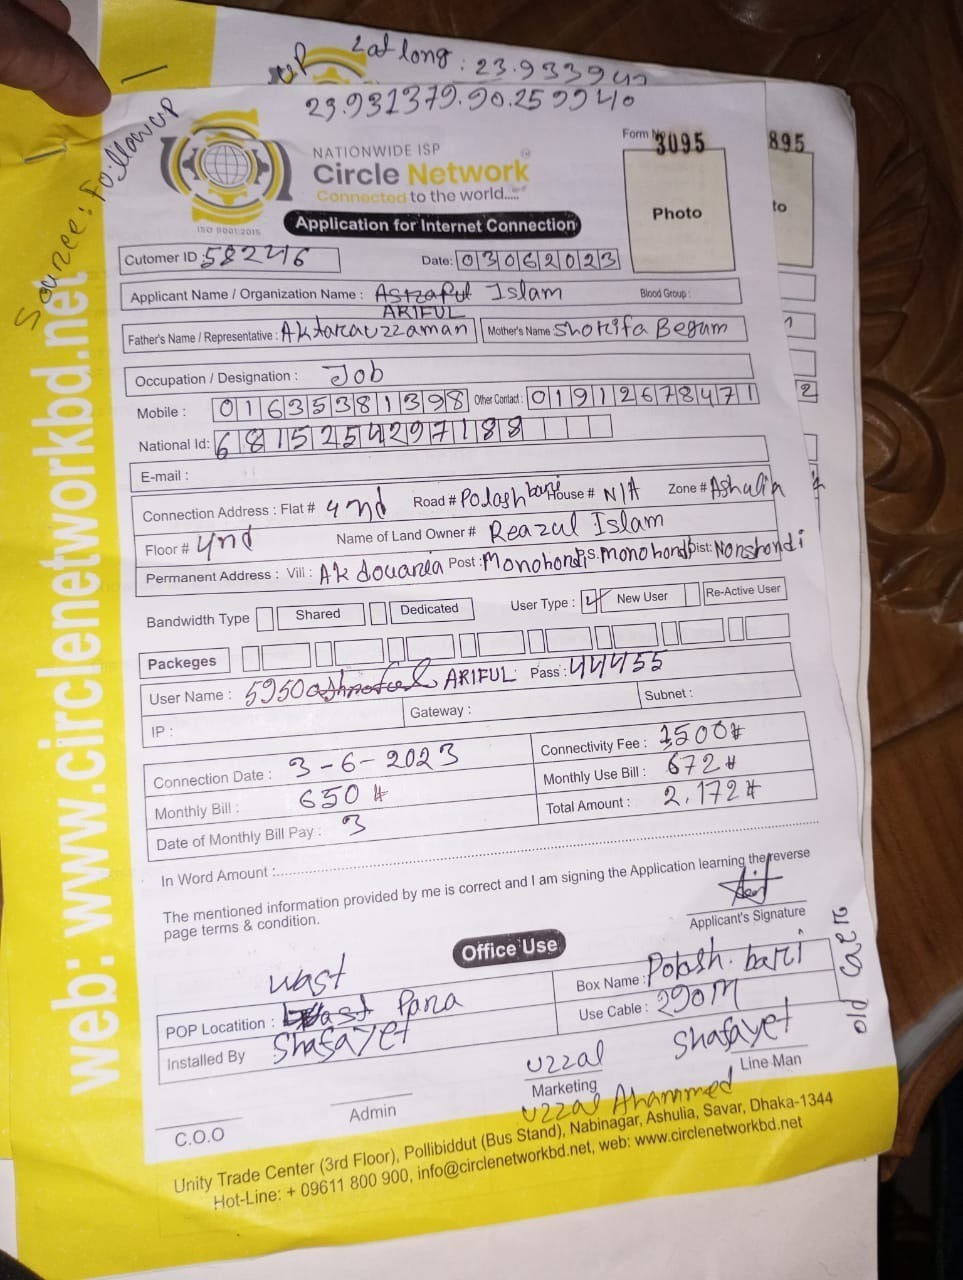 Lat long : 23.9339
23.931379.90.259940
Source: Follower
NATIONWIDE ISP
Circle Network
Connected to the world.....
ISO 9001:2015
Form No 3095
895
Photo
to
Application for Internet Connection
Cutomer ID : 582246
Date: 03062023
Applicant Name / Organization Name : Astraful Islam
Blood Group :
ARIFUL
Father's Name / Representative : Aktarauzzaman
Mother's Name Shorifa Begum
Occupation / Designation : Job
Mobile : 01635381398 Other Contact : 01912678471
2
National Id: 6815254297188
E-mail :
Connection Address : Flat # 4nd Road # Polash bari House # N/A Zone # Ashulia
Floor # 4nd Name of Land Owner # Reazul Islam
Permanent Address : Vill : Ak douaria Post : Monohondi P.S. monohondi Dist: Norshondi
Bandwidth Type Shared Dedicated User Type : New User Re-Active User
Packeges
User Name : 5950 ARIFUL Pass : 44455
IP : Gateway : Subnet :
Connection Date : 3-6-2023 Connectivity Fee : 1500#
Monthly Bill : 650 # Monthly Use Bill : 672#
Date of Monthly Bill Pay : 3 Total Amount : 2,172#
In Word Amount :
The mentioned information provided by me is correct and I am signing the Application learning the reverse
page terms & condition.
Applicant's Signature
Office Use
wast
POP Locatition : Para Box Name : Polash. bari
Installed By Shafayet Use Cable : 290m
uzzal Shafayet
Marketing Line Man
uzzal Ahammed
C.O.O Admin
Unity Trade Center (3rd Floor), Pollibiddut (Bus Stand), Nabinagar, Ashulia, Savar, Dhaka-1344
Hot-Line: + 09611 800 900, info@circlenetworkbd.net, web: www.circlenetworkbd.net
web: www.circlenetworkbd.net